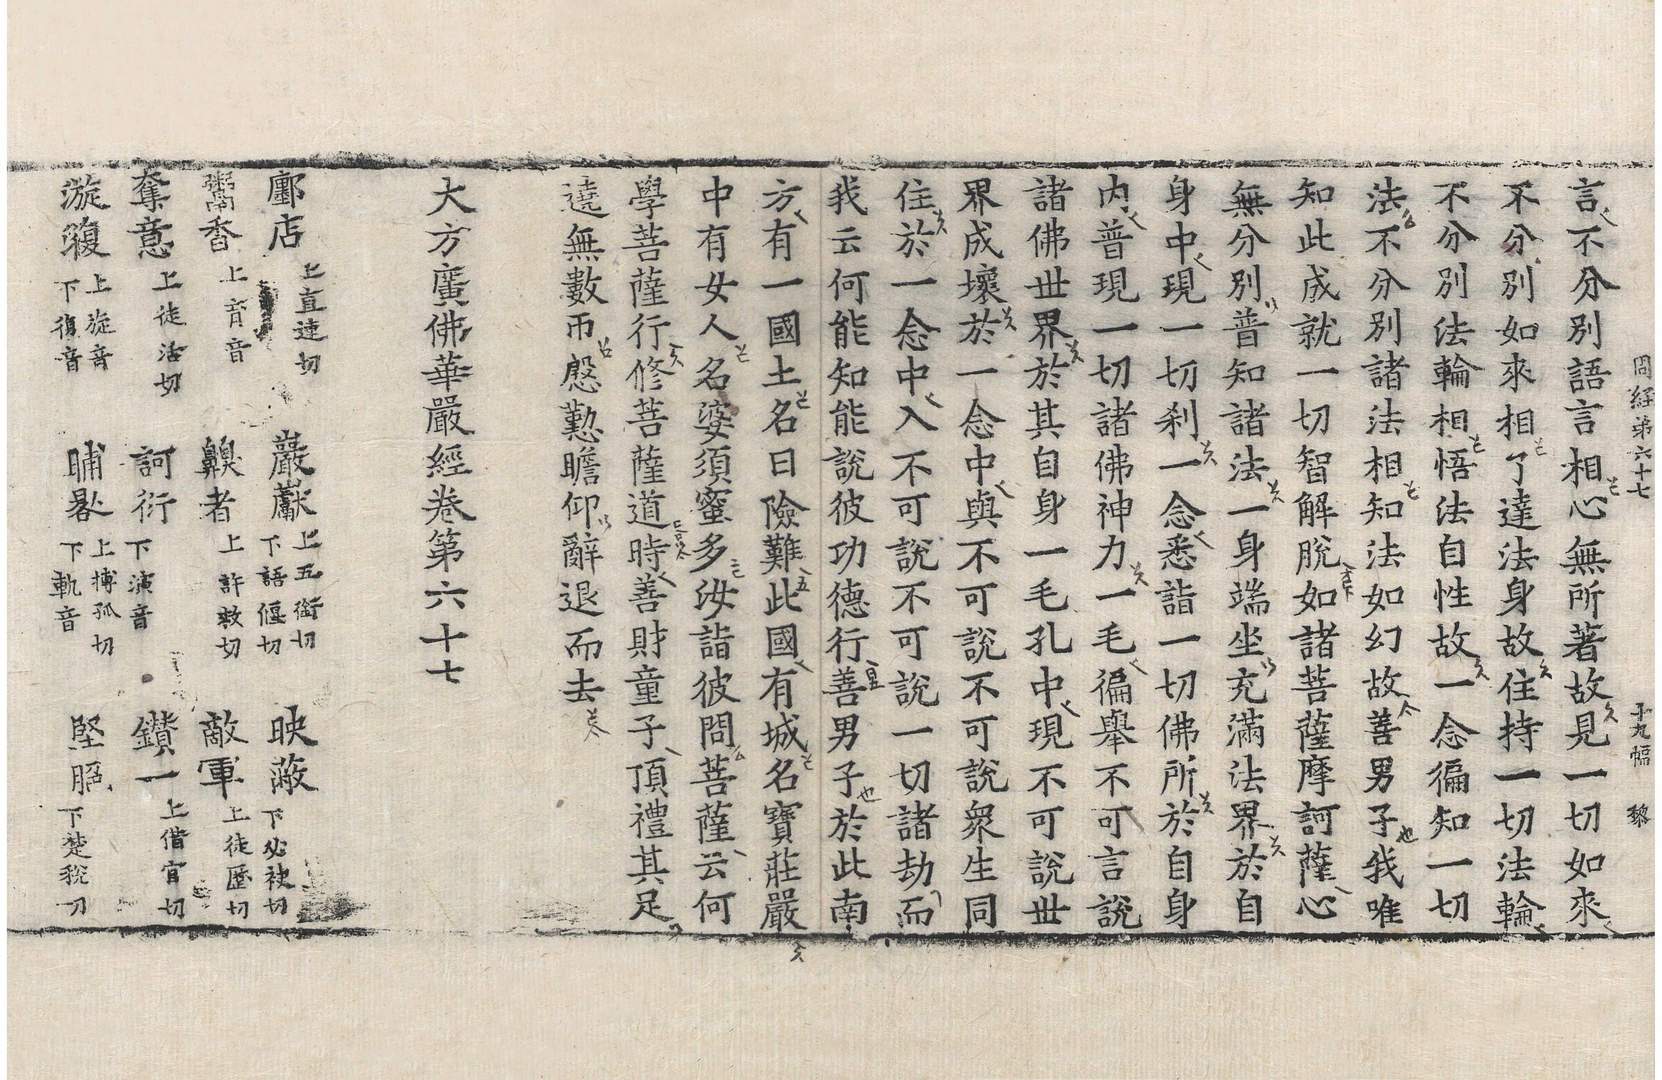 周經第六十七 十九幅 黎
言不分別語言相心無所著故見一切如來
不分別如來相了達法身故住持一切法輪
不分別法輪相悟法自性故一念徧知一切
法不分別諸法相知法如幻故善男子我唯
知此成就一切智解脫如諸菩薩摩訶薩心
無分別普知諸法一身端坐充滿法界於自
身中現一切刹一念悉詣一切佛所於自身
内普現一切諸佛神力一毛徧舉不可言說
諸佛世界於其自身一毛孔中現不可說世
界成壞於一念中與不可說不可說衆生同
住於一念中入不可說不可說一切諸劫而
我云何能知能說彼功德行善男子於此南
方有一國土名曰險難此國有城名寶莊嚴
中有女人名婆須蜜多汝詣彼問菩薩云何
學菩薩行修菩薩道時善財童子頂禮其足
遶無數帀慇懃瞻仰辭退而去
大方廣佛華嚴經卷第六十七
鄽店 上直連切 巖巘 上五銜切下語偃切 映蔽 下必袂切
鬻香 上育音 齅者 上許救切 敵軍 上徒歷切
奪意 上徒活切 訶衍 下演音 鑚一 上借官切
漩澓 上旋音下復音 晡晷 上博孤切下軌音 堅 下楚稅切